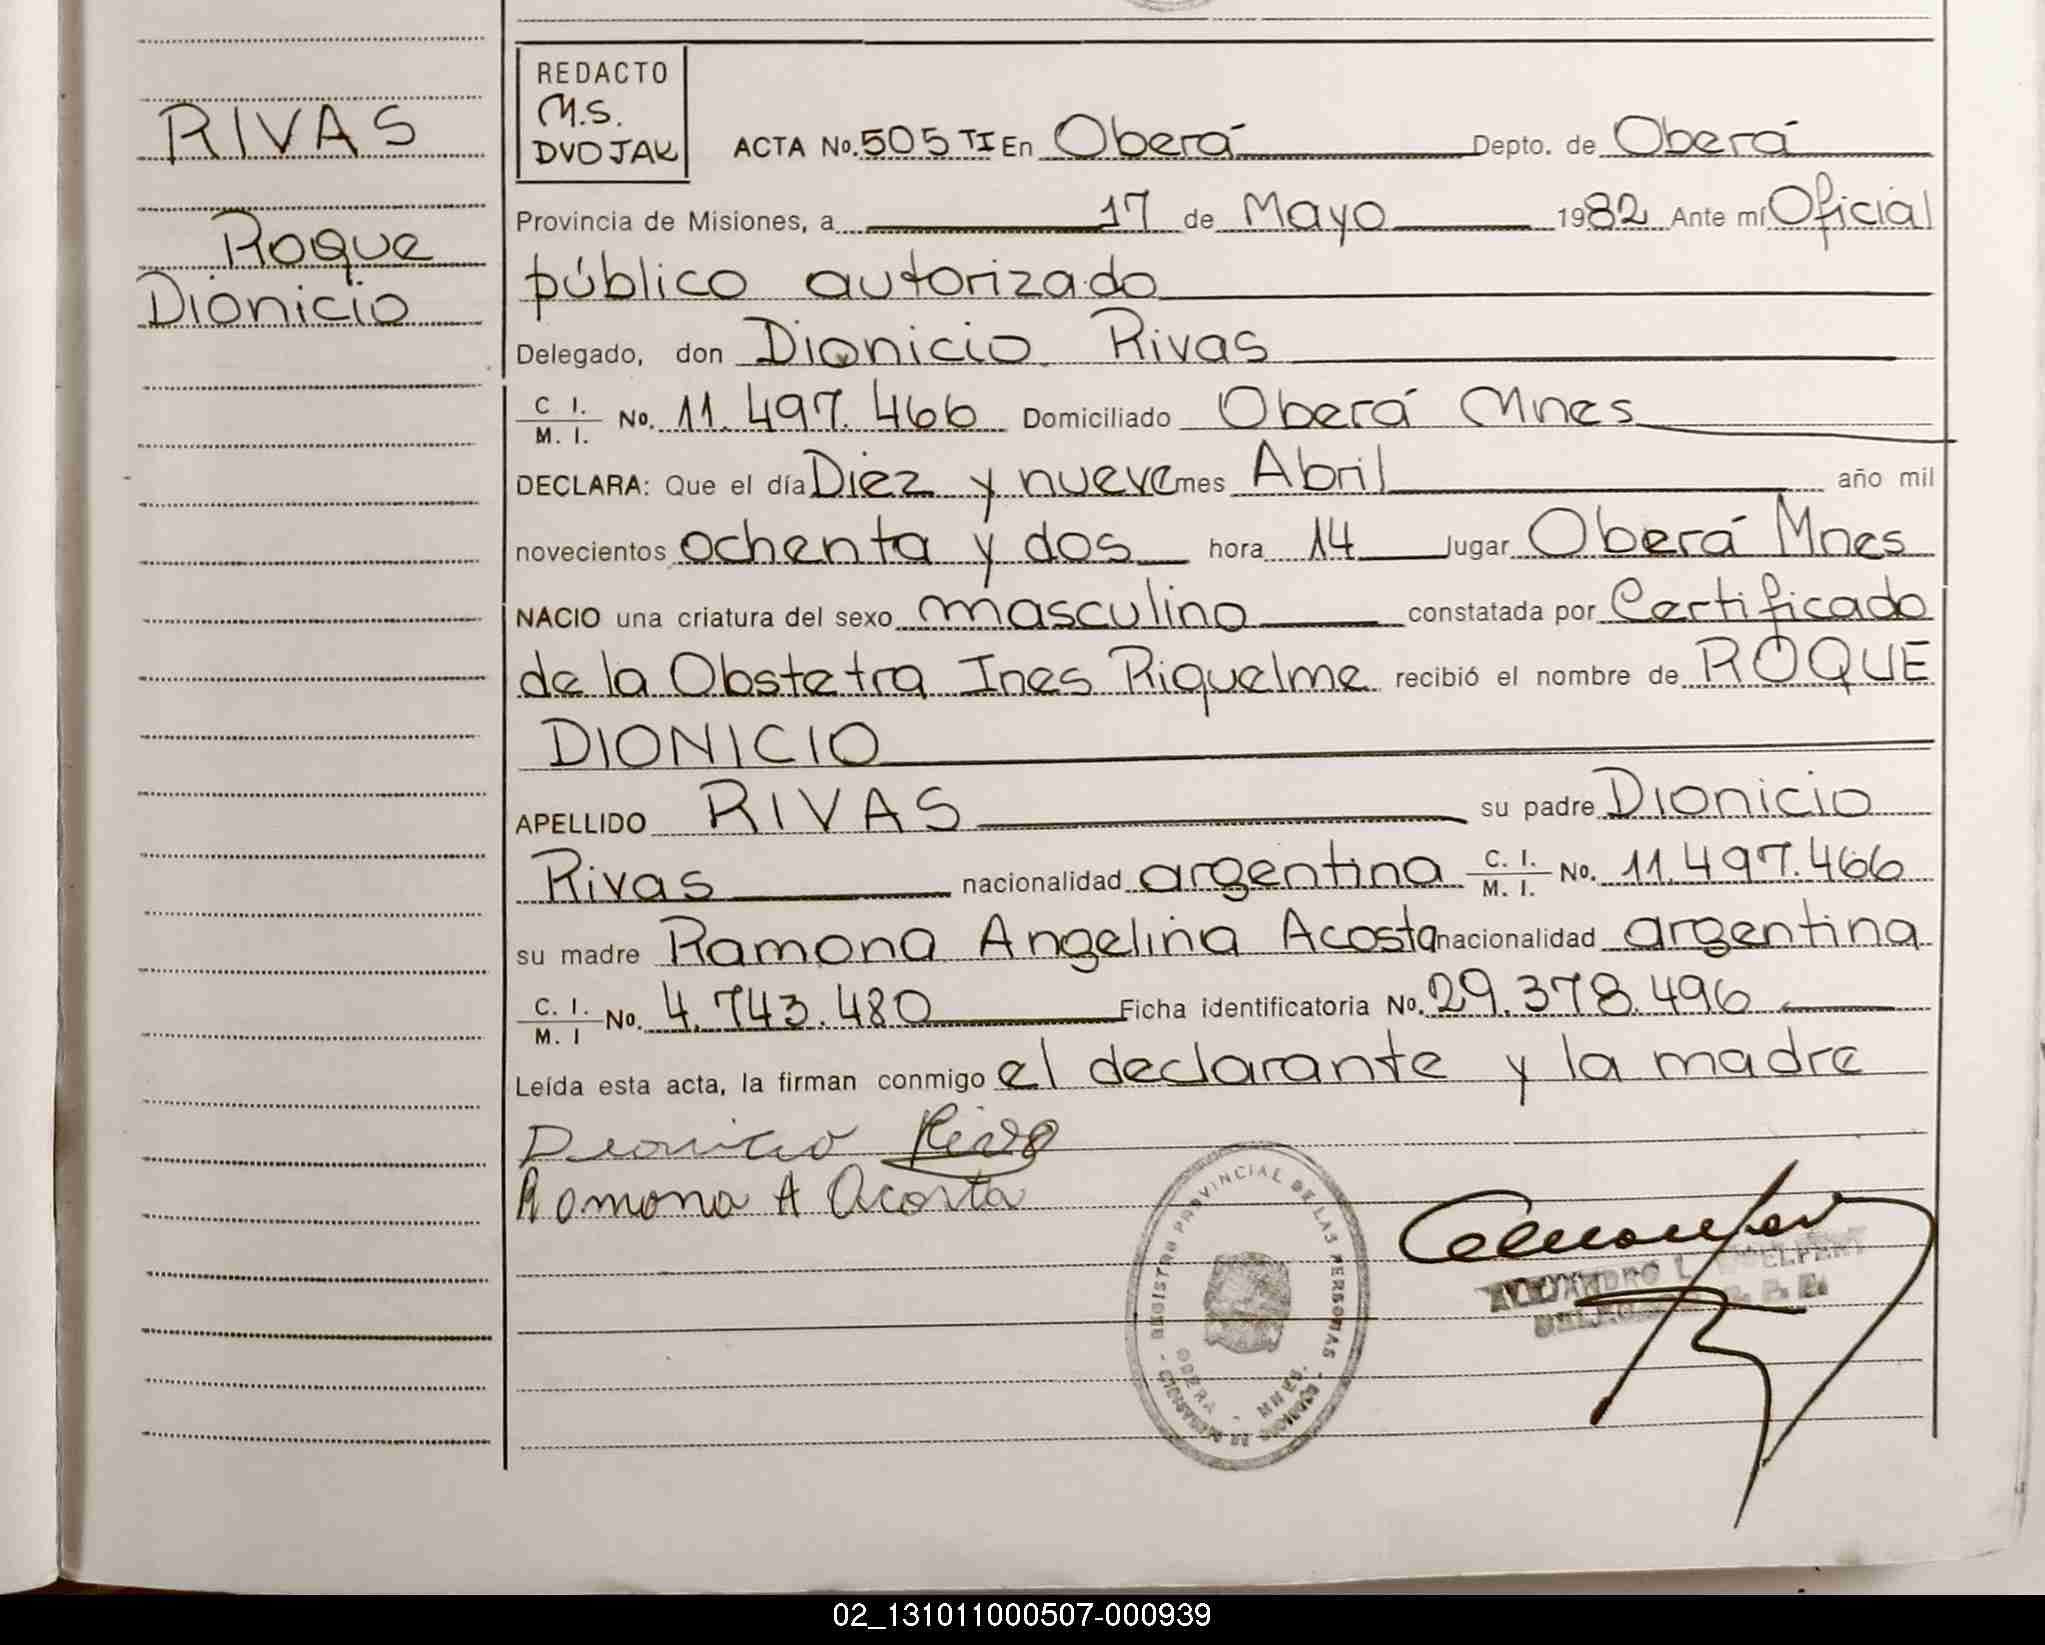 RIVAS
Roque
Dionicio
REDACTO
M.S.
DVOJAK
ACTA No. 505 TI En Oberá Depto. de Oberá
Provincia de Misiones, a 17 de Mayo 1982 Ante mí Oficial
público autorizado
Delegado, don Dionicio Rivas
C. I. / M. I. No. 11.497.466 Domiciliado Oberá Mnes
DECLARA: Que el día Diez y nueve mes Abril año mil
novecientos ochenta y dos hora 14 lugar Oberá Mnes
NACIO una criatura del sexo masculino constatada por Certificado
de la Obstetra Ines Riquelme recibió el nombre de ROQUE
DIONICIO
APELLIDO RIVAS su padre Dionicio
Rivas nacionalidad argentina C. I. / M. I. No. 11.497.466
su madre Ramona Angelina Acosta nacionalidad argentina
C. I. / M. I No. 4.743.480 Ficha identificatoria No. 29.378.496
Leída esta acta, la firman conmigo el declarante y la madre
Dionicio Rivas
Ramona A Acosta
REGISTRO PROVINCIAL DE LAS PERSONAS
OBERA - MNES.
ALEJANDRO L.
02_131011000507-000939